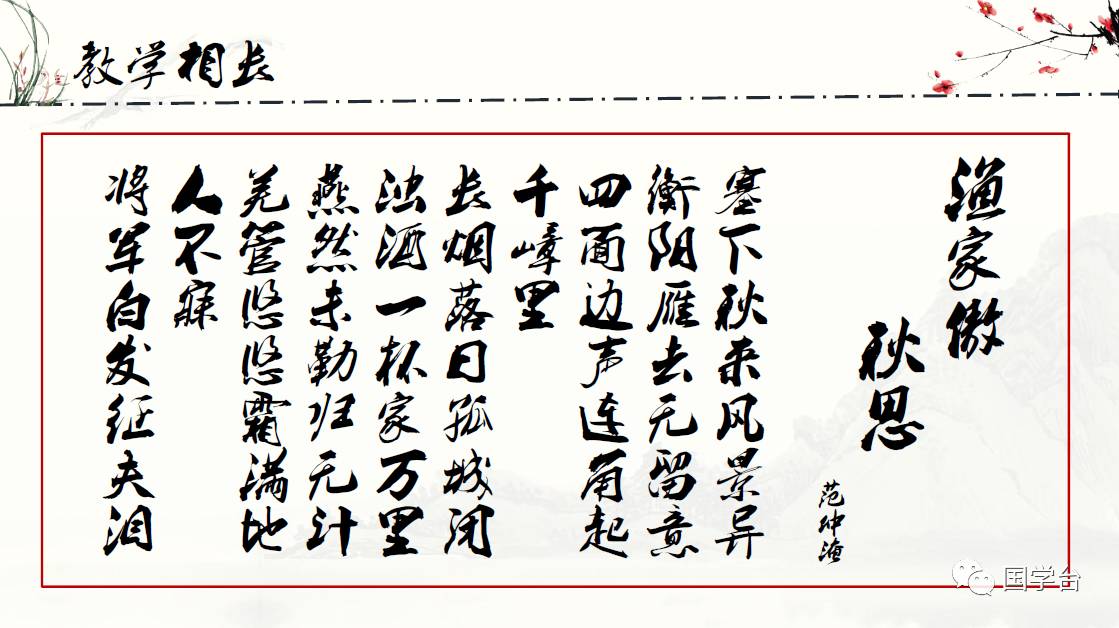 教学相长
渔家傲
秋思
范仲淹
塞下秋来风景异
衡阳雁去无留意
四面边声连角起
千嶂里
长烟落日孤城闭
浊酒一杯家万里
燕然未勒归无计
羌管悠悠霜满地
人不寐
将军白发征夫泪
国学台